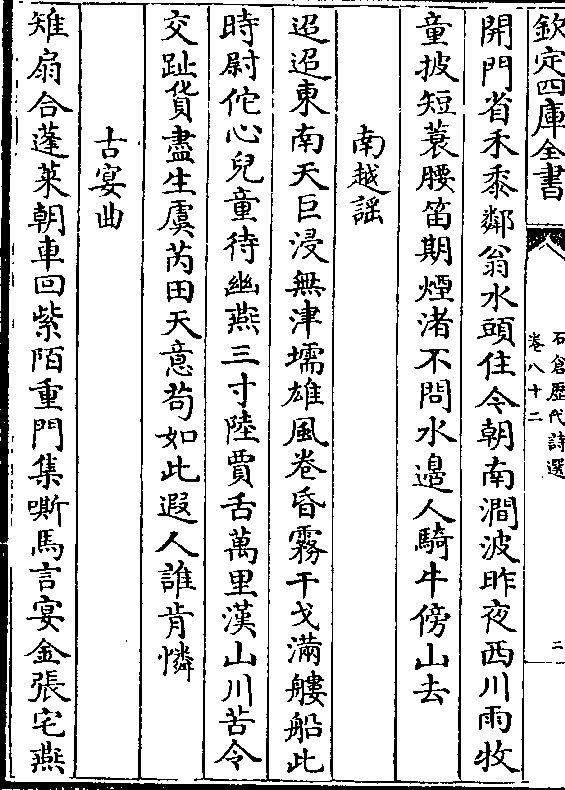 欽定四庫全書
石倉歴代詩選
卷八十二
二
開門省禾黍鄰翁水頭住今朝南澗波昨夜西川雨牧
童披短蓑腰笛期煙渚不問水邊人騎牛傍山去
南越謡
迢迢東南天巨浸無津壖雄風卷昏霧干戈滿艛船此
時尉佗心兒童待幽燕三寸陸賈舌萬里漢山川苦令
交趾貨盡生虞芮田天意苟如此遐人誰肯憐
古宴曲
雉扇合蓬萊朝車回紫陌重門集嘶馬言宴金張宅燕